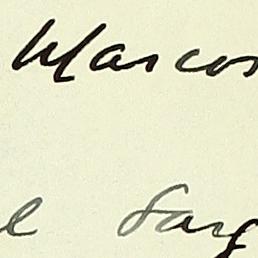 Marcos
e Sarg